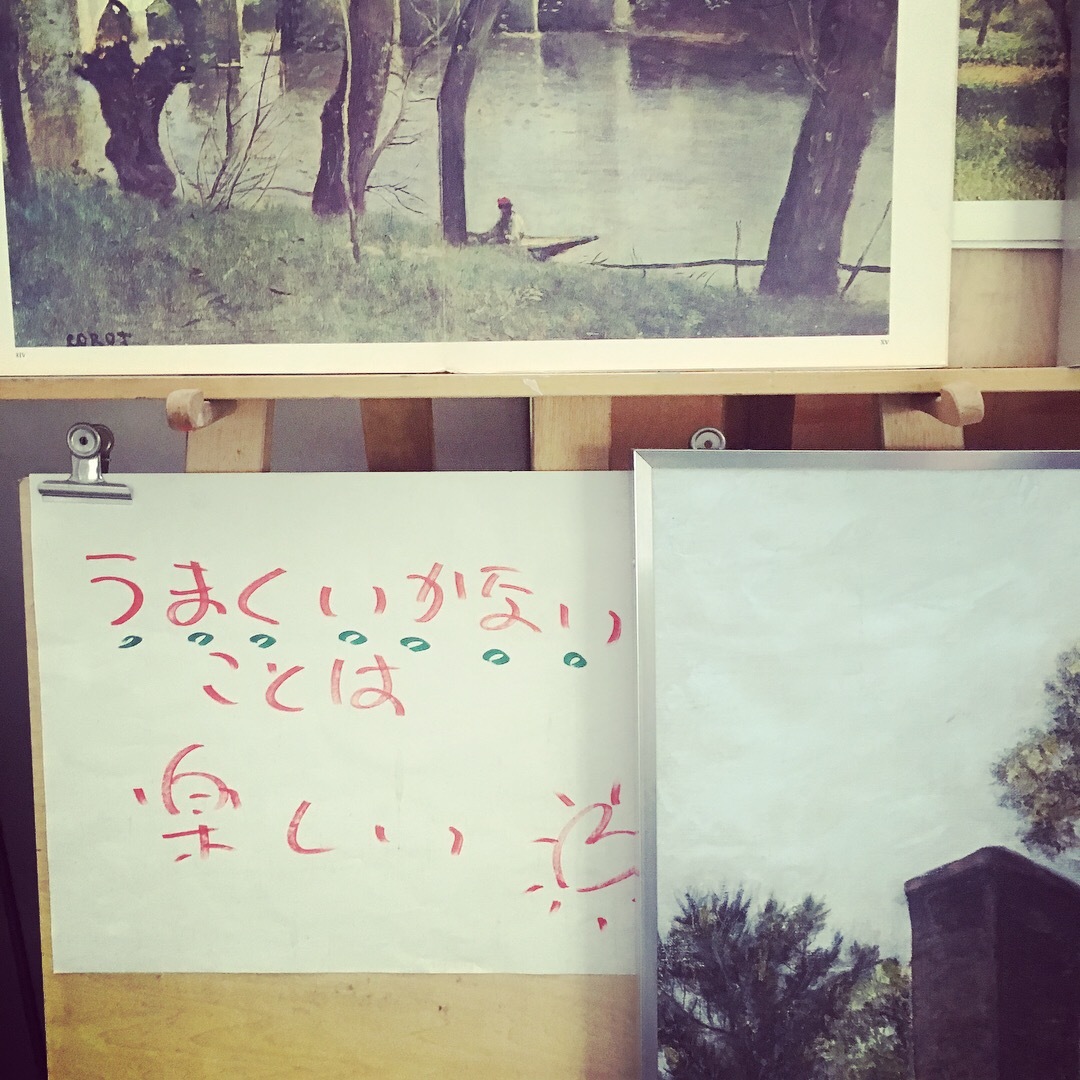 COROT
XIV
XV
うまくいかない
ことは
楽しい